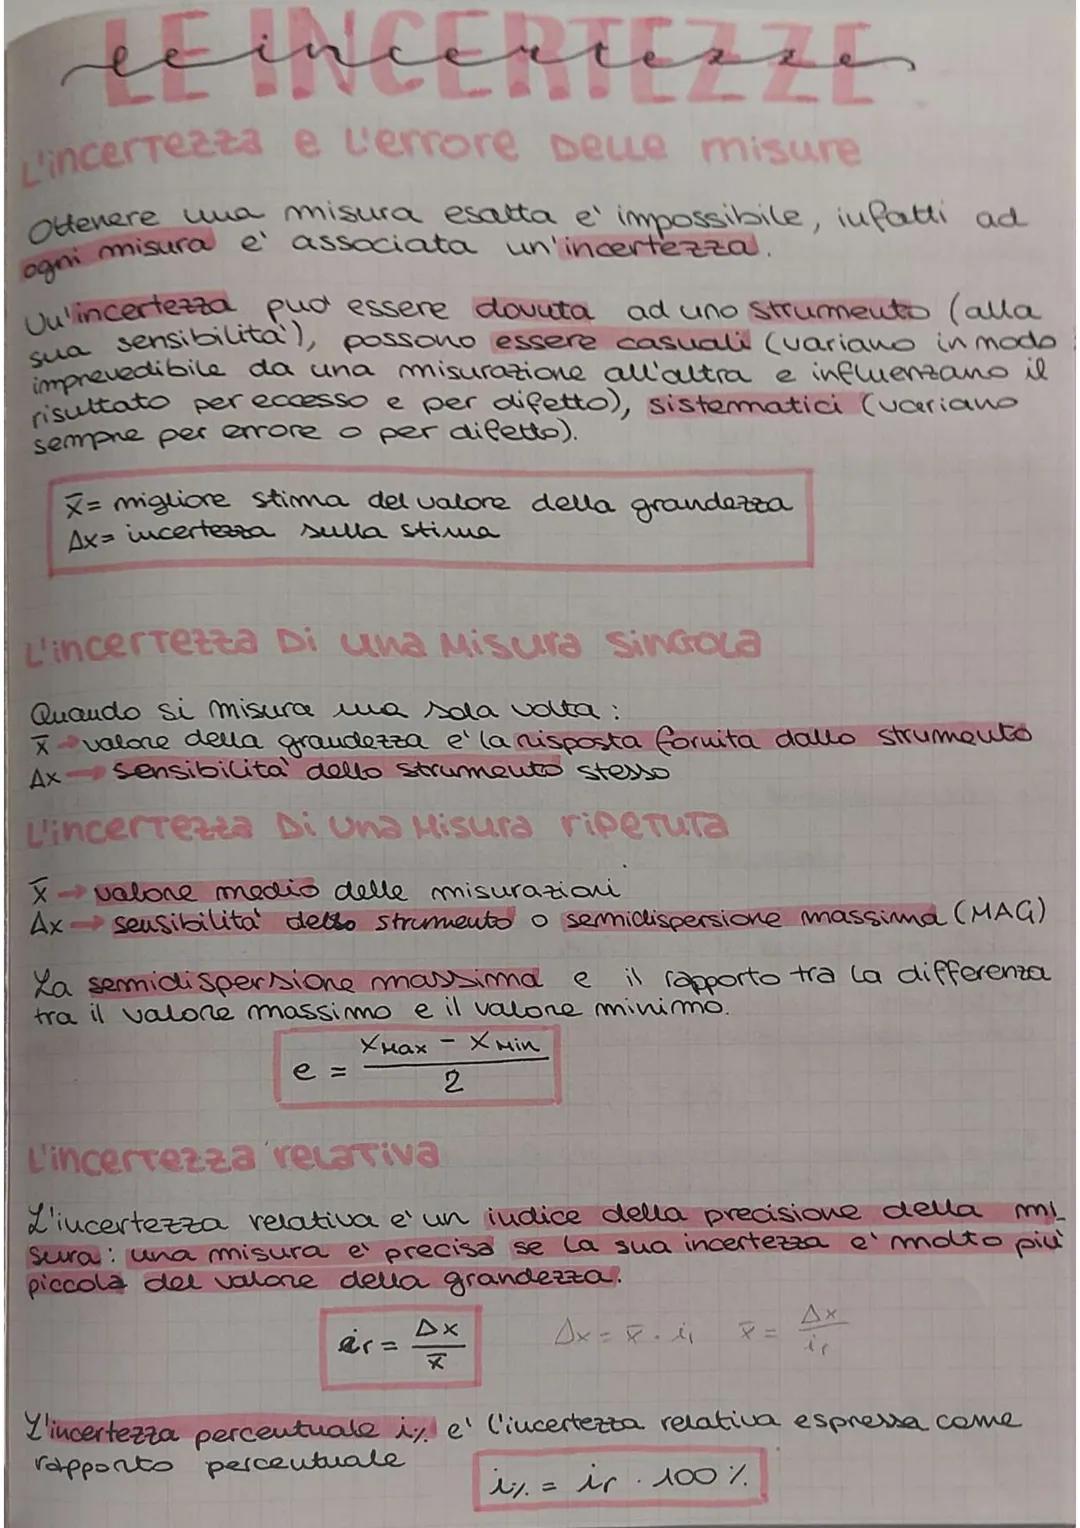 LE INCERTEZZE
le incertezze
L'incertezza e L'errore Delle misure
Ottenere una misura esatta e' impossibile, infatti ad
ogni misura e' associata un'incertezza.
Un'incertezza può essere dovuta ad uno strumento (alla
sua sensibilità), possono essere casuali (variano in modo
imprevedibile da una misurazione all'altra e influenzano il
risultato per eccesso e per difetto), sistematici (variano
sempre per errore o per difetto).
x̅= migliore stima del valore della grandezza
Δx= incertezza sulla stima
L'incertezza Di una Misura Singola
Quando si misura una sola volta:
x̅ → valore della grandezza e' la risposta fornita dallo strumento
Δx → sensibilità dello strumento stesso
L'incertezza Di Una Misura ripetuta
x̅ → valore medio delle misurazioni
Δx → sensibilità dello strumento o semidispersione massima (MAG)
La semidispersione massima e il rapporto tra la differenza
tra il valore massimo e il valore minimo.
e = (xMax - xMin) / 2
L'incertezza relativa
L'incertezza relativa e' un indice della precisione della mi_
sura: una misura e' precisa se la sua incertezza e' molto più
piccola del valore della grandezza.
ir = Δx / x̅ Δx = x̅ · ir x̅ = Δx / ir
L'incertezza percentuale i% e' l'incertezza relativa espressa come
rapporto percentuale
i% = ir · 100 %